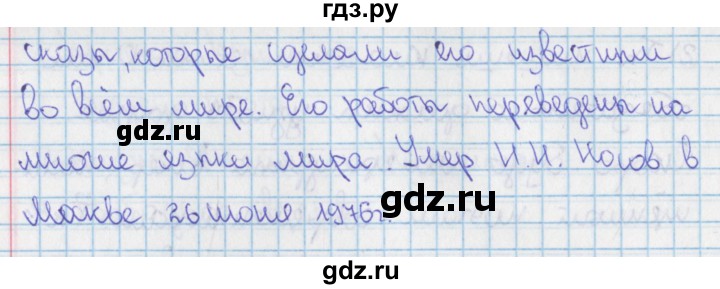 гдз.ру
сказы, которые сделали его известным
во всём мире. Его работы переведены на
gdz.ru
многие языки мира. Умер Н.Н. Носов в
Москве 26 июля 1976г.
gdz.ru
gdz.ru